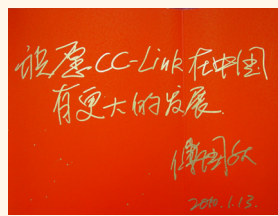 祝愿CC-Link在中国
有更大的发展.
2010.1.13.